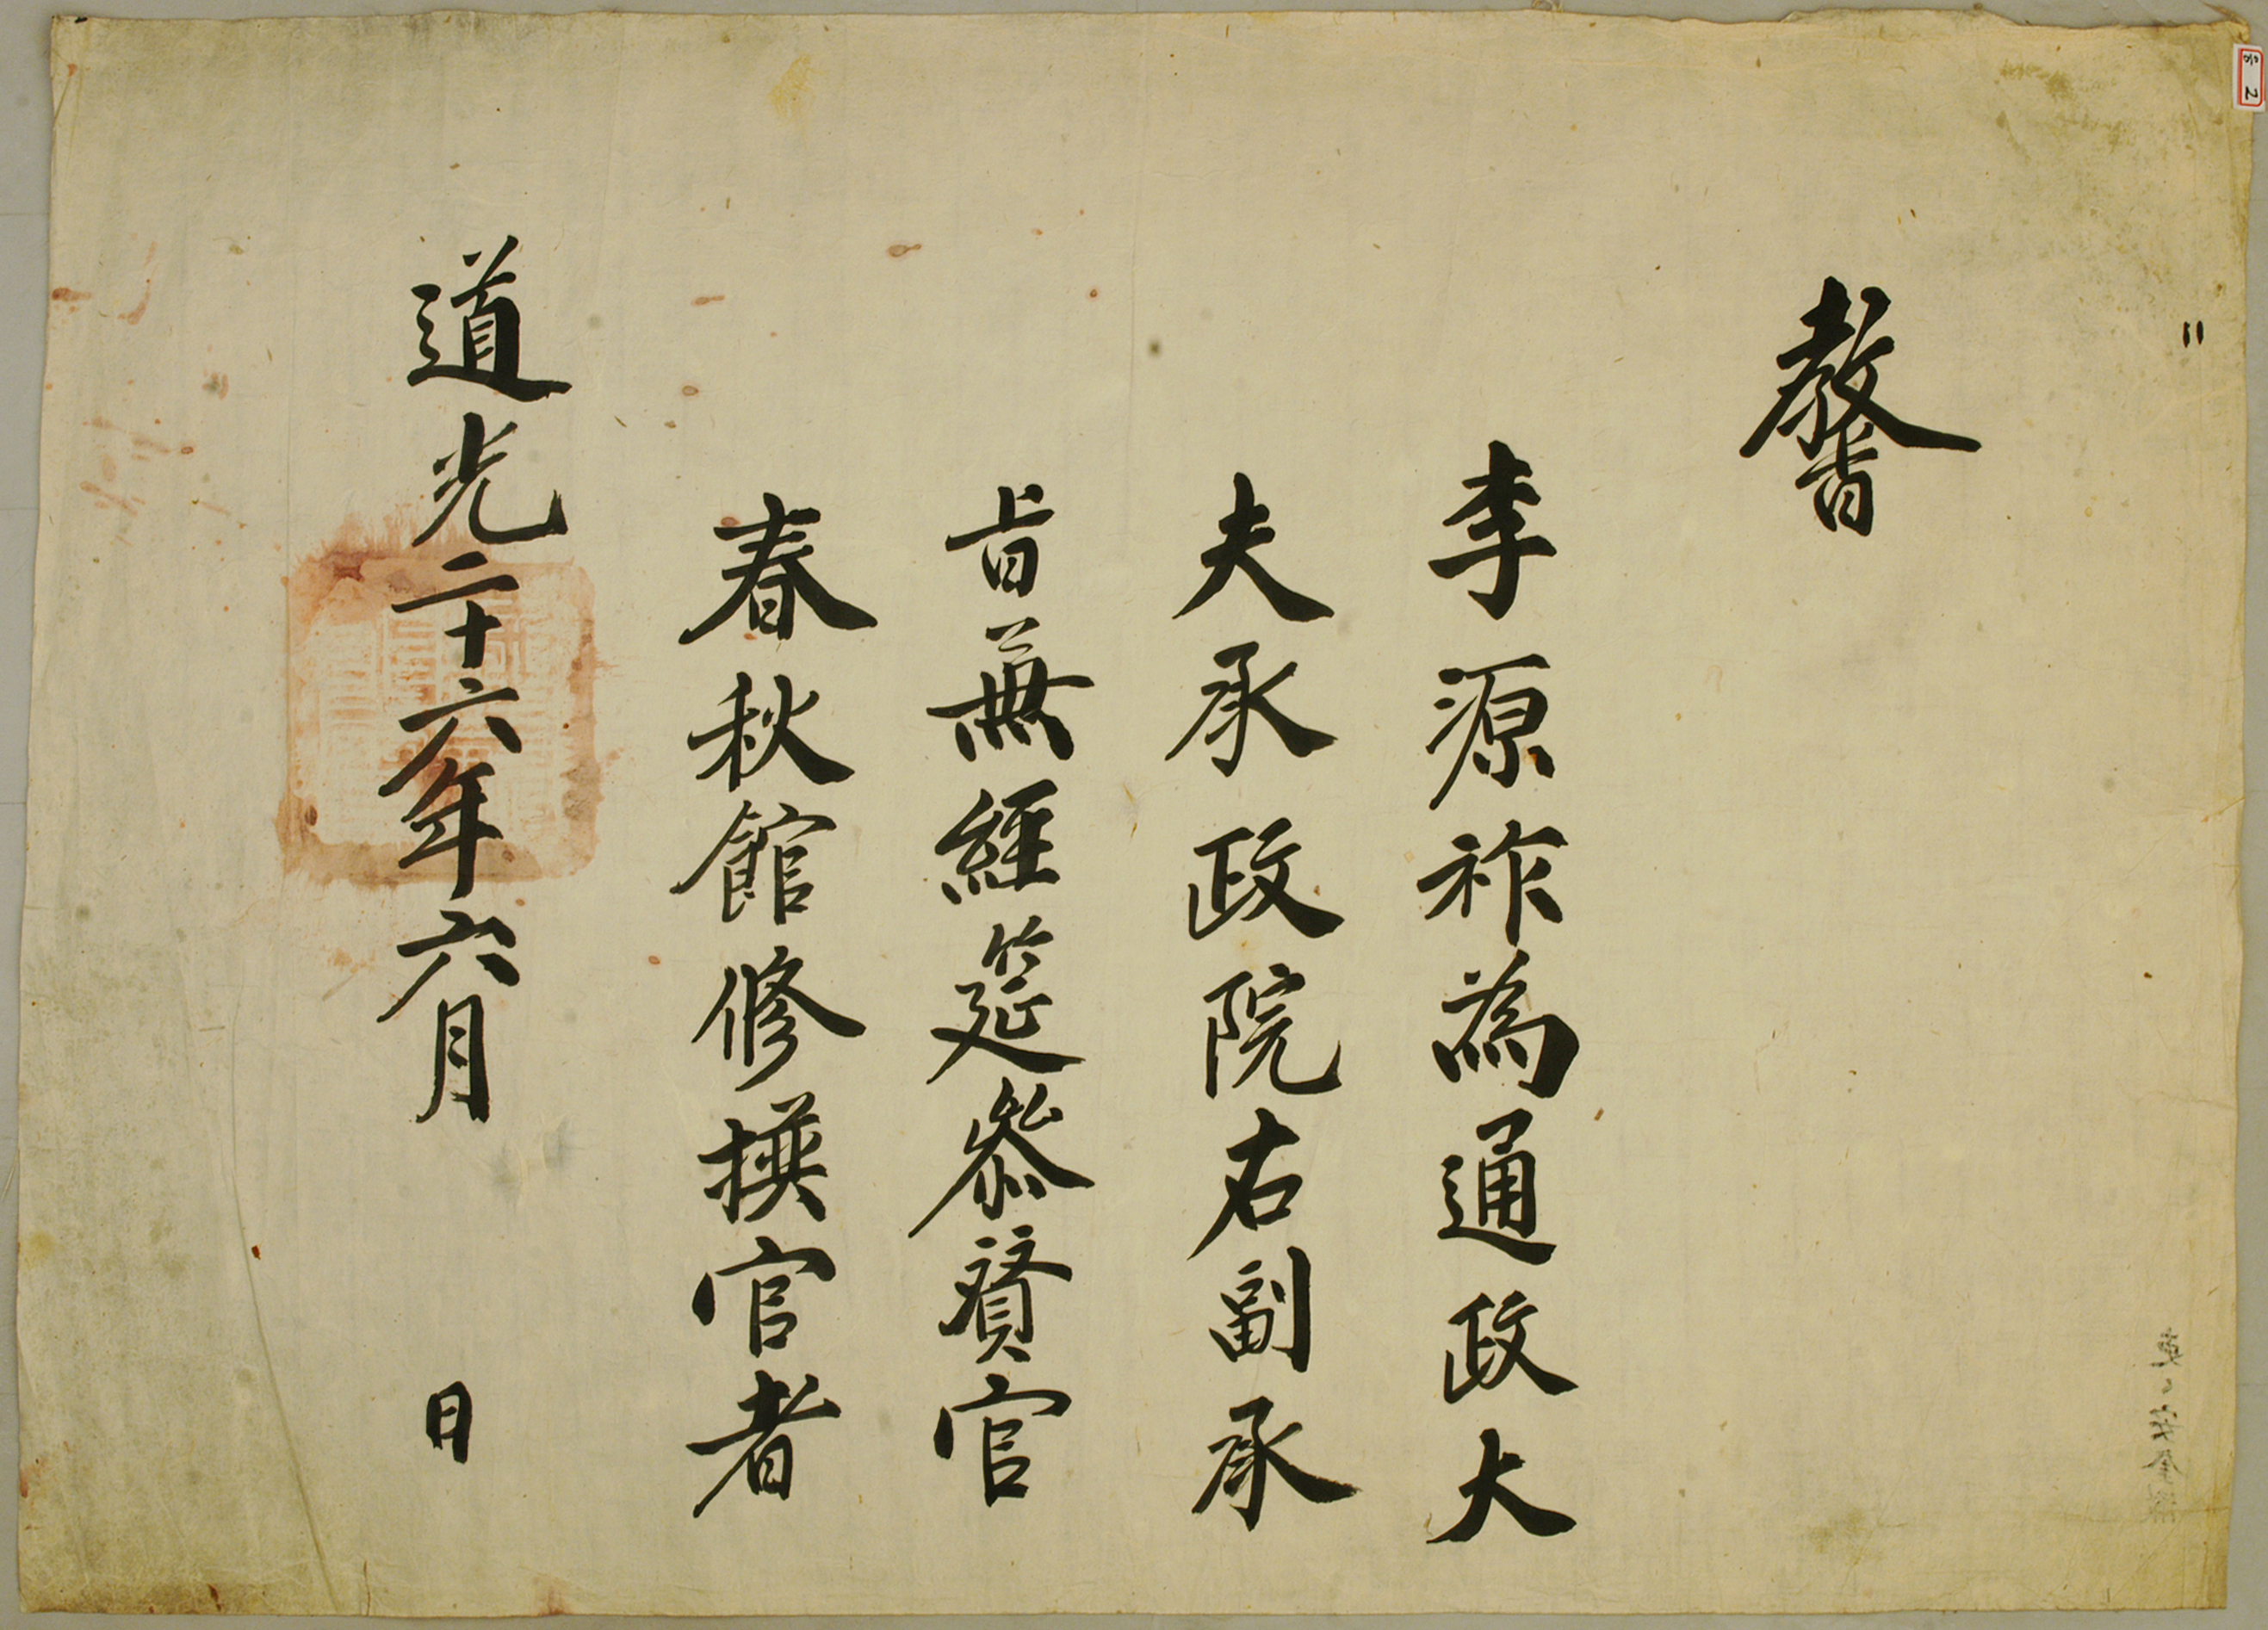 教旨
李源祚為通政大
夫承政院右副承
旨兼經筵參贊官
春秋館修撰官者
道光二十六年六月 日
2